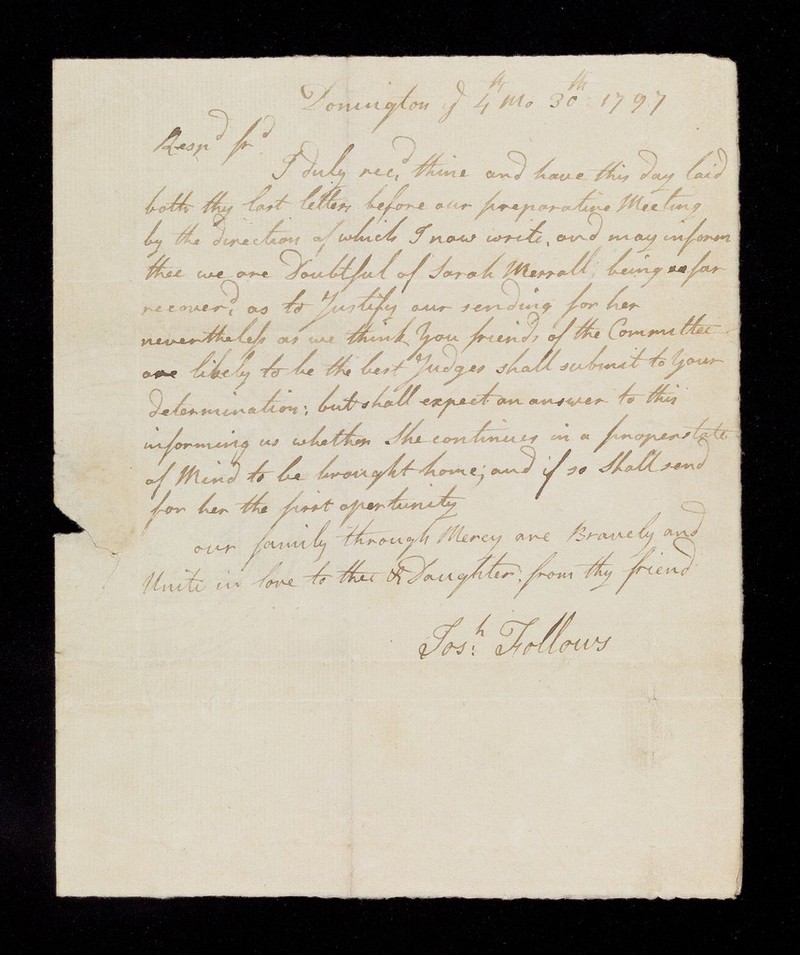 Donington ye 4th Mo 30th 1797
Respd frd
I duly recd, thine and have this day laid
both thy last letters before our preparative Meeting
by the direction of which I now write, and may inform
thee we are Doubtful of Sarah Merrall being so far
recoverd, as to Justify our sending for her
nevertheless as we think You friends of the Committee
are likely to be the best Judges shall submit to Your
determination; but shall expect an answer to this
informing us whether She continues in a proper state
of Mind to be brought home; and if so Shall send
for her the first opertunity
our family through Mercy are Bravely and
Unite in love to thee & Daughter, from thy friend
Josh: Follows